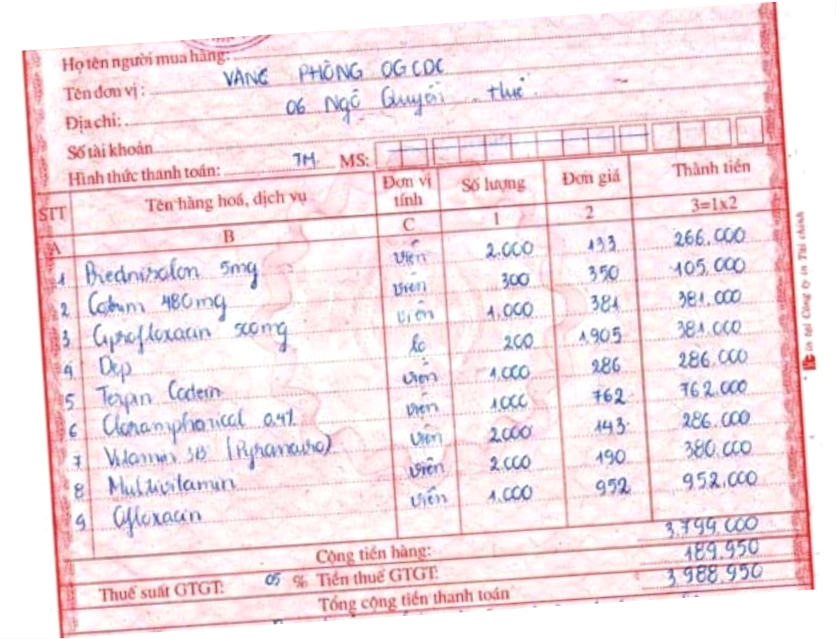 Họ tên người mua hàng:
Tên đơn vị: VĂNG PHÒNG OGCDC
Địa chỉ: 06 Ngô Quyền Huế
Số tài khoản
Hình thức thanh toán: TM MS:
STT Tên hàng hoá, dịch vụ Đơn vị tính Số lượng Đơn giá Thành tiền
A B C 1 2 3=1x2
1 Prednisolon 5mg viên 2.000 133 266.000
2 Cotrim 480mg viên 300 350 105.000
3 Ciprofloxacin 500mg viên 1.000 381 381.000
4 Dep lo 200 1.905 381.000
5 Terpin Codein viên 1.000 286 286.000
6 Cloramphenical 0,4% viên 1.000 762 762.000
7 Vitamin 3B viên 2.000 143 286.000
8 Multivitamin viên 2.000 190 380.000
9 Ofloxacin viên 1.000 952 952.000
Cộng tiền hàng: 3.799.000
Thuế suất GTGT: 05 % Tiền thuế GTGT: 189.950
Tổng cộng tiền thanh toán 3.988.950
in tại Công ty in Tài chính